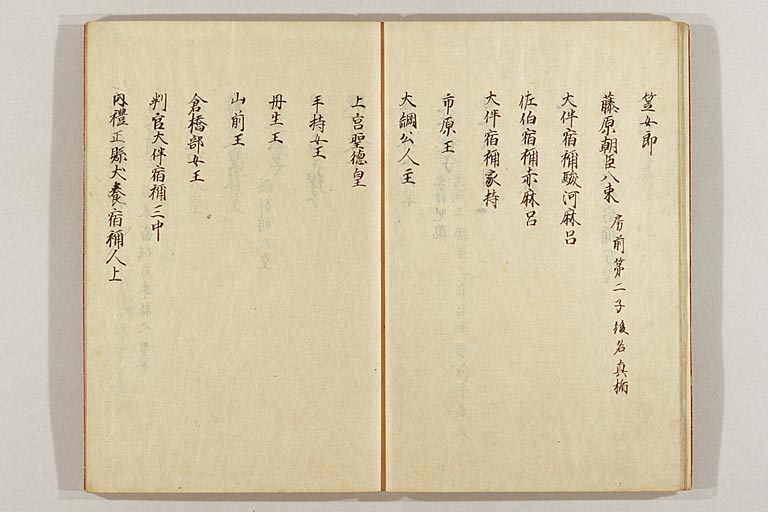 笠女郎
藤原朝臣八束 房前第二子後名真楯
大伴宿祢駿河麻呂
佐伯宿祢赤麻呂
大伴宿祢家持
市原王
大綱公人主
上宮聖徳皇
手持女王
丹生王
山前王
倉橋部女王
判官大伴宿祢三中
内禮正縣犬養宿祢人上